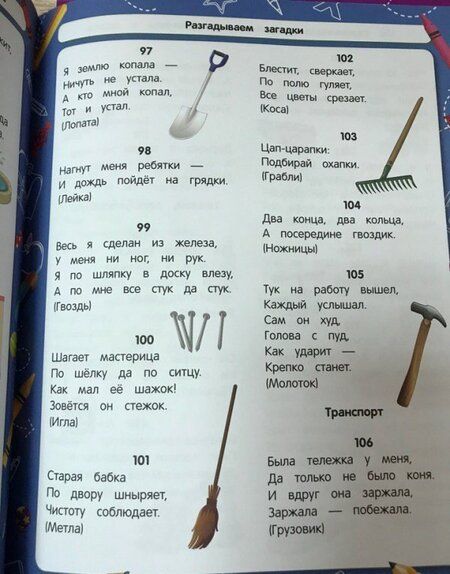 Разгадываем загадки
97
Я землю копала —
Ничуть не устала.
А кто мной копал,
Тот и устал.
(Лопата)
98
Нагнут меня ребятки —
И дождь пойдёт на грядки.
(Лейка)
99
Весь я сделан из железа,
У меня ни ног, ни рук.
Я по шляпку в доску влезу,
А по мне все стук да стук.
(Гвоздь)
100
Шагает мастерица
По шёлку да по ситцу.
Как мал её шажок!
Зовётся он стежок.
(Игла)
101
Старая бабка
По двору шныряет,
Чистоту соблюдает.
(Метла)
102
Блестит, сверкает,
По полю гуляет,
Все цветы срезает.
(Коса)
103
Цап-царапки:
Подбирай охапки.
(Грабли)
104
Два конца, два кольца,
А посередине гвоздик.
(Ножницы)
105
Тук на работу вышел,
Каждый услышал.
Сам он худ,
Голова с пуд,
Как ударит —
Крепко станет.
(Молоток)
Транспорт
106
Была тележка у меня,
Да только не было коня.
И вдруг она заржала,
Заржала — побежала.
(Грузовик)